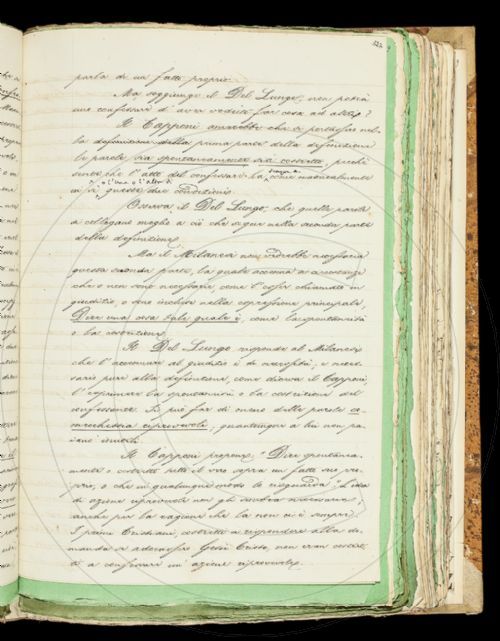 parla di un fatto proprio.
Ma soggiunge il Del Lungo, non potrà
uno confessare d'aver veduto far cosa ad altri?
Il Capponi amerebbe che si portasse nel-
la definizione della prima parte della definizione
le parole, sia spontaneamente sia costretto, perché
sente che l'atto del confessare ha come naturalmente
in sè, queste due condizioni.
o l'una o l'altra di
Osserva il Del Lungo, che quelle parole
si collegano meglio a ciò che segue nella seconda parte
della definizione.
Ma il Milanesi non vedrebbe necessaria
questa seconda parte, la quale accenna a circostanze
che o non sono necessarie, come l'esser chiamato in
giudizio, o sono incluse nella espressione principale,
Dire una cosa tale quale è, come la spontaneità
o la costrizione.
Il Del Lungo risponde al Milanesi
che l'accennare al giudizio è di necessità; e neces-
sario pure alla definizione, come diceva il Capponi,
l'esprimere la spontaneità o la costrizione del
confessare. Si può far di meno delle parole
riprovevole, quantunque a lui non pa-
iano inutili.
Il Capponi propone: "Dire spontanea-
mente o costretti altri il vero sopra un fatto suo pro-
prio, o che in qualunque modo lo risguarda". L'idea
di azione riprovevole non gli sembra necessaria,
anche per la ragione che la non vi è sempre.
I primi Cristiani, costretti a rispondere alla do-
manda se adorassero Gesù Cristo, non eran costret-
ti a confessare un'azione riprovevole.